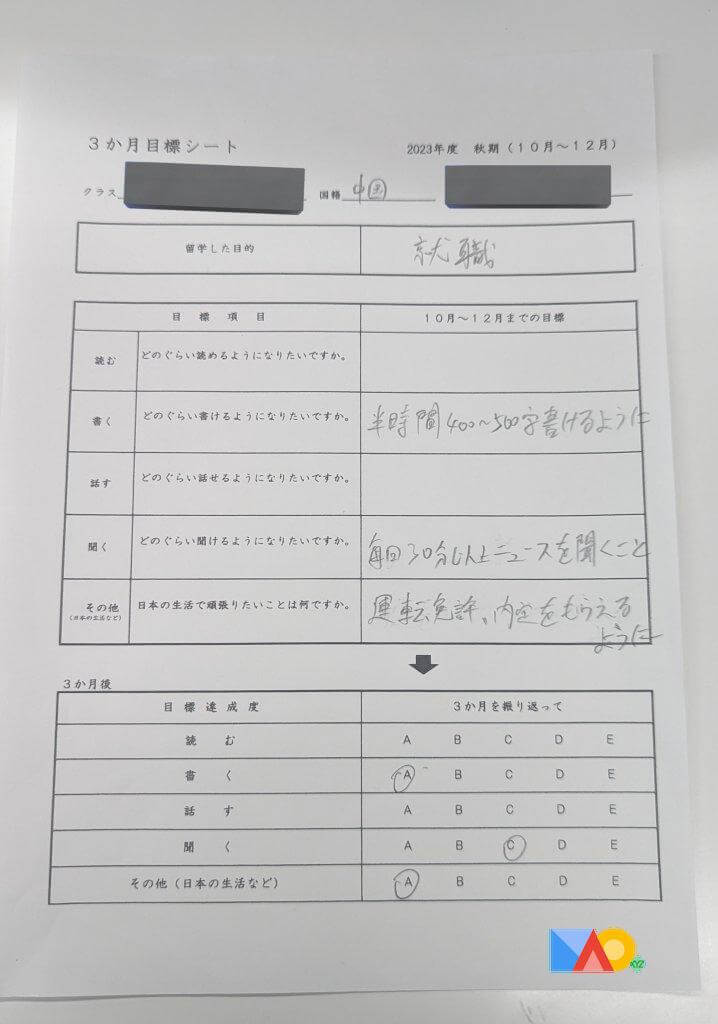 3か月目標シート
2023年度 秋期(10月~12月)
クラス 国籍 中国
留学した目的 就職
目標項目 10月~12月までの目標
読む どのぐらい読めるようになりたいですか。
書く どのぐらい書けるようになりたいですか。 半時間400~500字書けるように
話す どのぐらい話せるようになりたいですか。
聞く どのぐらい聞けるようになりたいですか。 毎回30分以上ニュースを聞くこと
その他 日本の生活で頑張りたいことは何ですか。 運転免許、内定をもらえる
(日本の生活など) ように
3か月後
目標達成度 3か月を振り返って
読む A B C D E
書く A B C D E
話す A B C D E
聞く A B C D E
その他(日本の生活など) A B C D E
XYZ